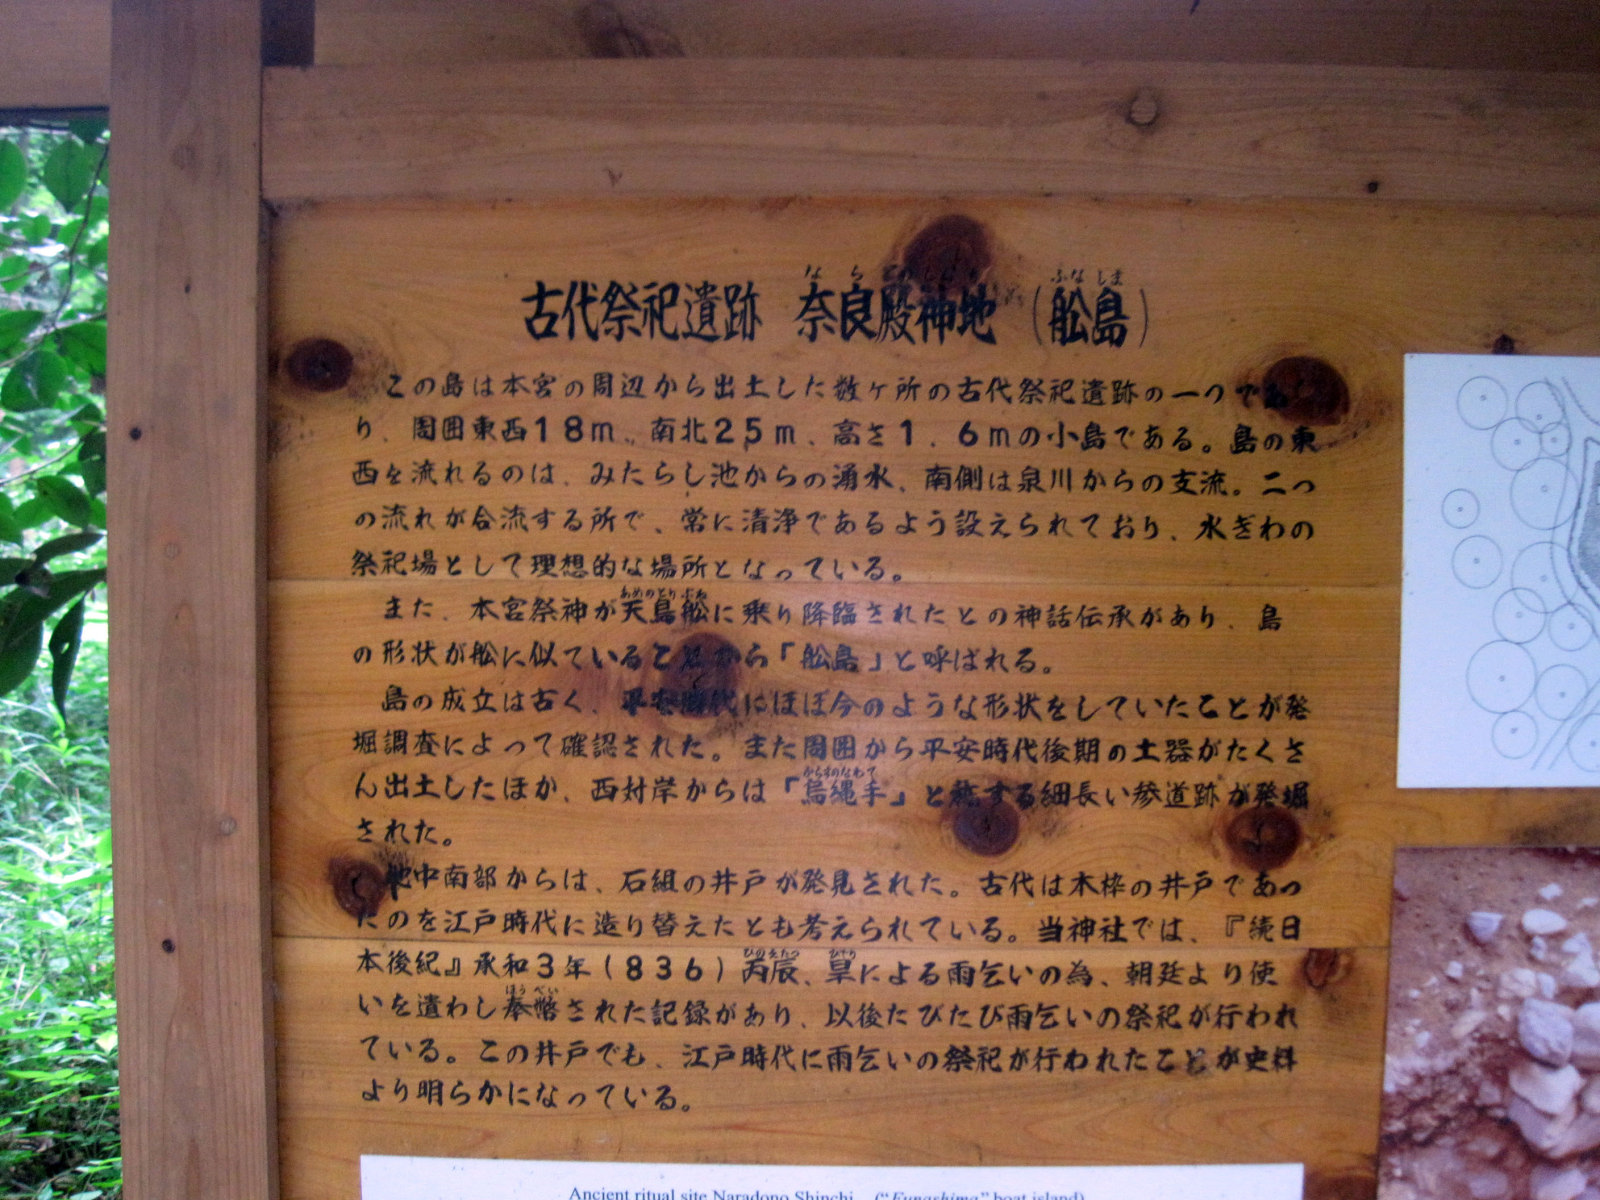 古代祭祀遺跡 奈良殿神地（舩島）
この島は本宮の周辺から出土した数ヶ所の古代祭祀遺跡の一つであ
り、周囲東西18m、南北25m、高さ1．6mの小島である。島の東
西を流れるのは、みたらし池からの湧水、南側は泉川からの支流。二つ
の流れが合流する所で、常に清浄であるよう設えられており、水ぎわの
祭祀場として理想的な場所となっている。
また、本宮祭神が天鳥舩に乗り降臨されたとの神話伝承があり、島
の形状が舩に似ていることから「舩島」と呼ばれる。
島の成立は古く、平安時代にほぼ今のような形状をしていたことが発
掘調査によって確認された。また周囲から平安時代後期の土器がたくさ
ん出土したほか、西対岸からは「烏縄手」と称する細長い参道跡が発掘
された。
地中南部からは、石組の井戸が発見された。古代は木枠の井戸であっ
たのを江戸時代に造り替えたとも考えられている。当神社では、『続日
本後紀』承和3年（836）丙辰、旱による雨乞いの為、朝廷より使
いを遣わし奉幣された記録があり、以後たびたび雨乞いの祭祀が行われ
ている。この井戸でも、江戸時代に雨乞いの祭祀が行われたことが史料
より明らかになっている。
Ancient ritual site Naradono Shinchi (“Funashima” boat island)